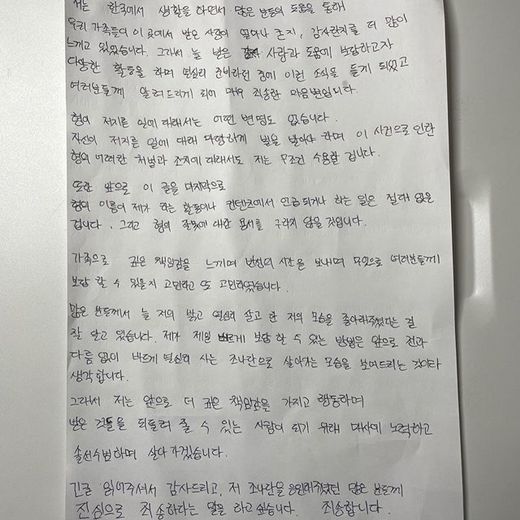 저는 한국에서 생활을 하면서 많은 분들의 도움을 통해
우리 가족들이 이 곳에서 받은 사랑이 얼마나 큰지, 감사한지를 더 많이
느끼고 있었습니다. 그래서 늘 받은 사랑과 도움에 보답하고자
다양한 활동을 하며 열심히 준비하던 중에 이런 소식을 듣게 되었고
여러분들께 알려드리게 되어 매우 죄송한 마음뿐입니다.
형이 저지른 일에 대해서는 어떤 변명도 없습니다.
자신이 저지른 일에 대해 마땅하게 벌을 받아야 하며 이 사건으로 인한
형의 어떠한 처벌과 조치에 대해서도 저는 무조건 수용할 겁니다.
또한 앞으로 이 글을 마지막으로
형의 이름이 제가 하는 활동이나 컨텐츠에서 언급되거나 하는 일은 절대 없을
겁니다. 그리고 형의 잘못에 대한 용서를 구하지 않을 것입니다.
가족으로 깊은 책임감을 느끼며 반성의 시간을 보내며 무엇으로 여러분들께
보답 할 수 있을지 고민하고 또 고민하였습니다.
많은 분들께서 늘 저의 밝고 열심히 살고 한 저의 모습을 좋아해주셨다는 걸
잘 알고 있습니다. 제가 제일 빠르게 보답 할 수 있는 방법은 앞으로 전과
다름 없이 바르게 열심히 사는 조나단으로 살아가는 모습을 보여드리는 것이라
생각합니다.
그래서 저는 앞으로 더 깊은 책임감을 가지고 행동하며
받은 것들을 되돌려 줄 수 있는 사람이 되기 위해 대사에 노력하고
솔선수범하며 살아가겠습니다.
긴글 읽어주셔서 감사드리고, 저 조나단을 응원해주셨던 많은 분들께
진심으로 죄송하다는 말을 하고 싶습니다. 죄송합니다.